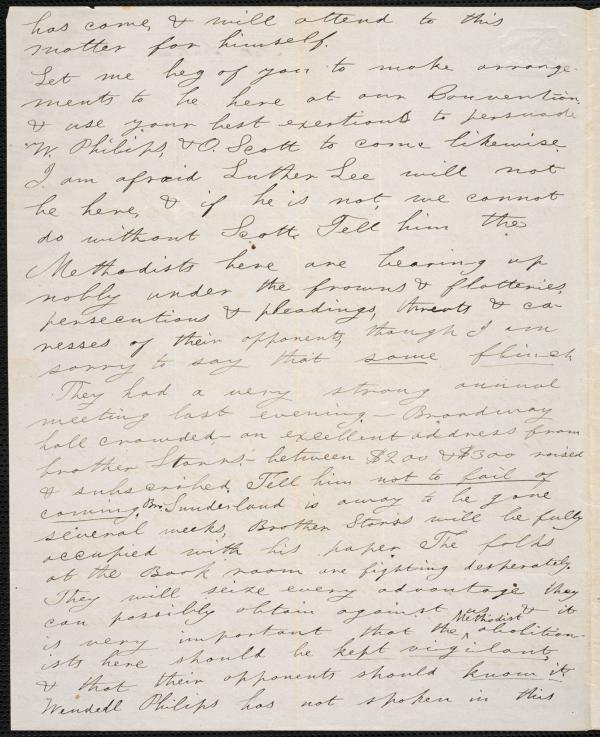 has come, & will attend to this
matter for himself.
Let me beg of you to make arrange-
ments to be here at our Convention,
& use your best exertions to persuade
W. Philips, & O. Scott to come likewise.
I am afraid Luther Lee will not
be here, & if he is not, we cannot
do without Scott. Tell him the
Methodists here are bearing up
nobly under the frowns & flatteries,
persecutions & pleadings, threats & ca-
resses of their opponents, though I am
sorry to say that some flinch.
They had a very strong annual
meeting last evening – Broadway
hall crowded – an excellent address from
brother Storrs – between $200 & $300 raised
& subscribed. Tell him not to fail of
coming. Br. Sunderland is away to be gone
several weeks, Brother Storrs will be fully
occupied with his paper. The folks
at the Book room are fighting desperately.
They will seize every advantage they
can possibly obtain against us, & it
is very important that the Methodist abolition-
ists here should be kept vigilant,
& that their opponents should know it.
Wendell Philips has not spoken in this